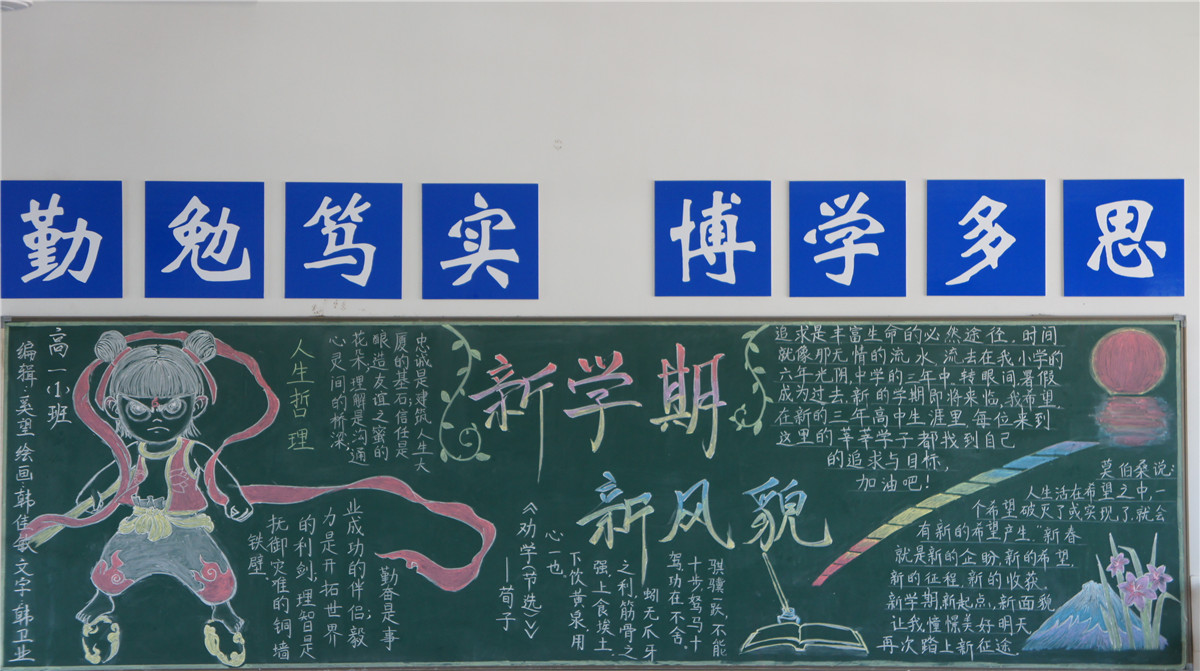 勤勉笃实
博学多思
高一(1)班
编辑:奚望 绘画:韩佳敏 文字:韩卫业
人生哲理
忠诚是建筑人生大
厦的基石;信任是
酿造友谊之蜜的
花朵;理解是沟通
心灵间的桥梁;
勤奋是事
业成功的伴侣;毅
力是开拓世界
的利剑;理智是
抚御灾难的铜墙
铁壁.
新学期
新风貌
骐骥一跃,不能
十步;驽马十
驾,功在不舍。
蚓无爪牙
之利,筋骨之
强,上食埃土,
下饮黄泉,用
心一也.
《劝学(节选)》
——荀子
追求是丰富生命的必然途径,时间
就像那无情的流水,流去在我小学的
六年光阴,中学的三年中,转眼间暑假
成为过去,新的学期即将来临,我希望
在新的三年高中生涯里,每位来到
这里的莘莘学子都找到自己
的追求与目标,
加油吧!
莫伯桑说:
人生活在希望之中,一
个希望破灭了或实现了,就会
有新的希望产生."新春
就是新的企盼,新的希望,
新的征程,新的收获.
新学期,新起点,新面貌
让我憧憬美好明天,
再次踏上新征途.